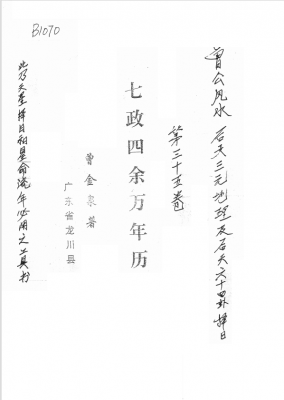 B1070
曾公风水 后天三元地理及后天六十四卦择日
第三十五卷
七政四余万年历
曾金泉著
广东省龙川县
此乃天星择日和星命流年必用之工具书